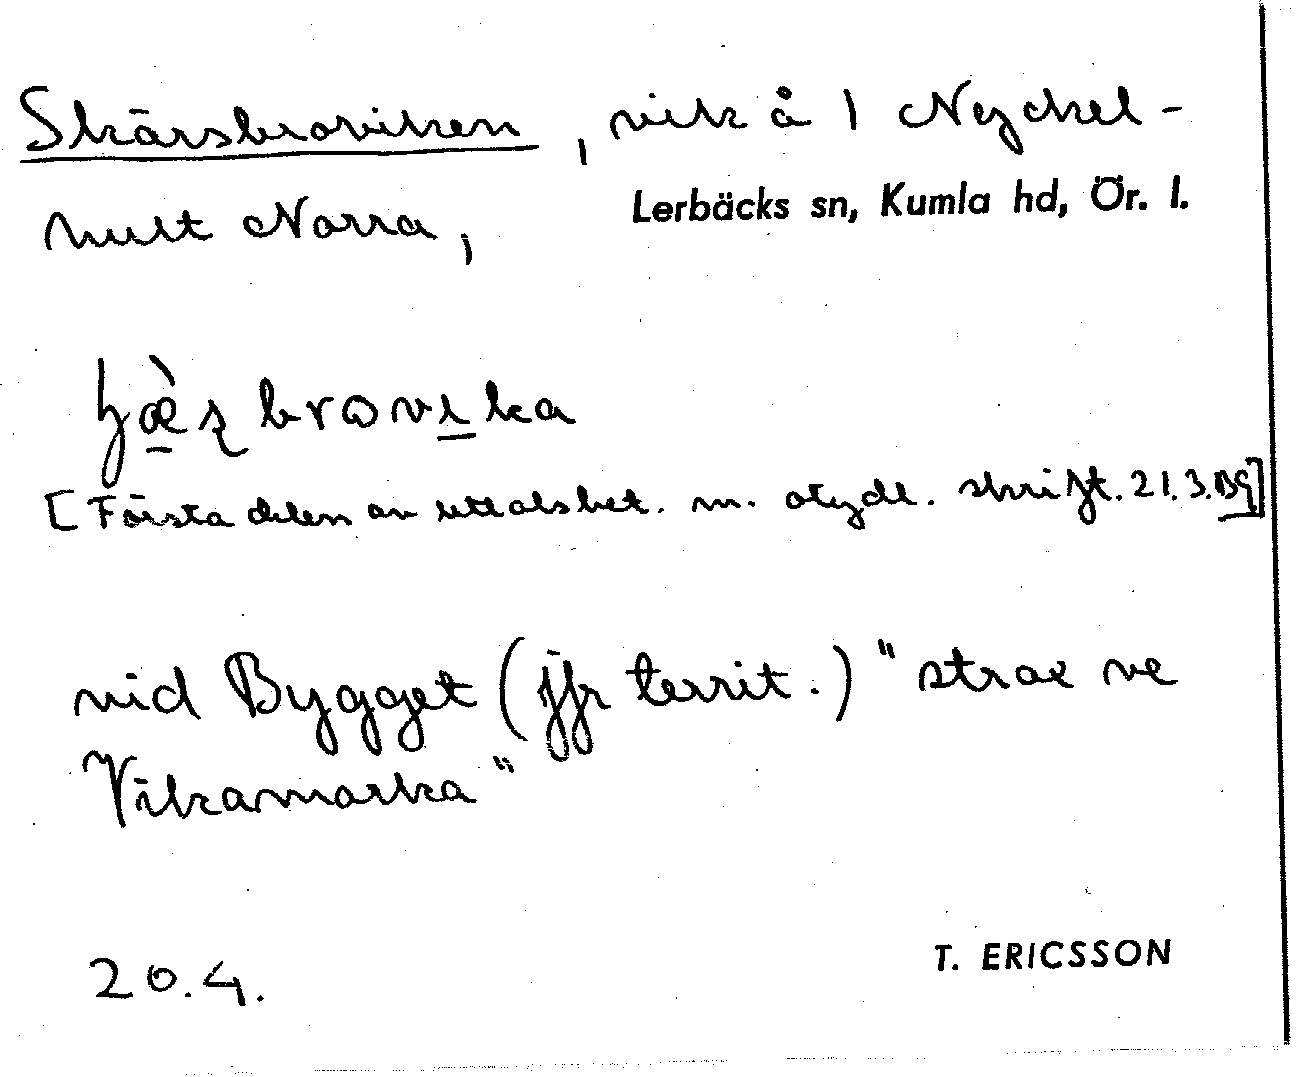 Skärsbroviken, vik å 1 Nyckel-
hult Norra,
Lerbäcks sn, Kumla hd, Ör. l.
[Första delen av uttalsbet. m. otydl. skrift. 21.3.BG]
vid Bygget (jfr territ.) "strax ve
Vikamarka"
20.4.
T. ERICSSON